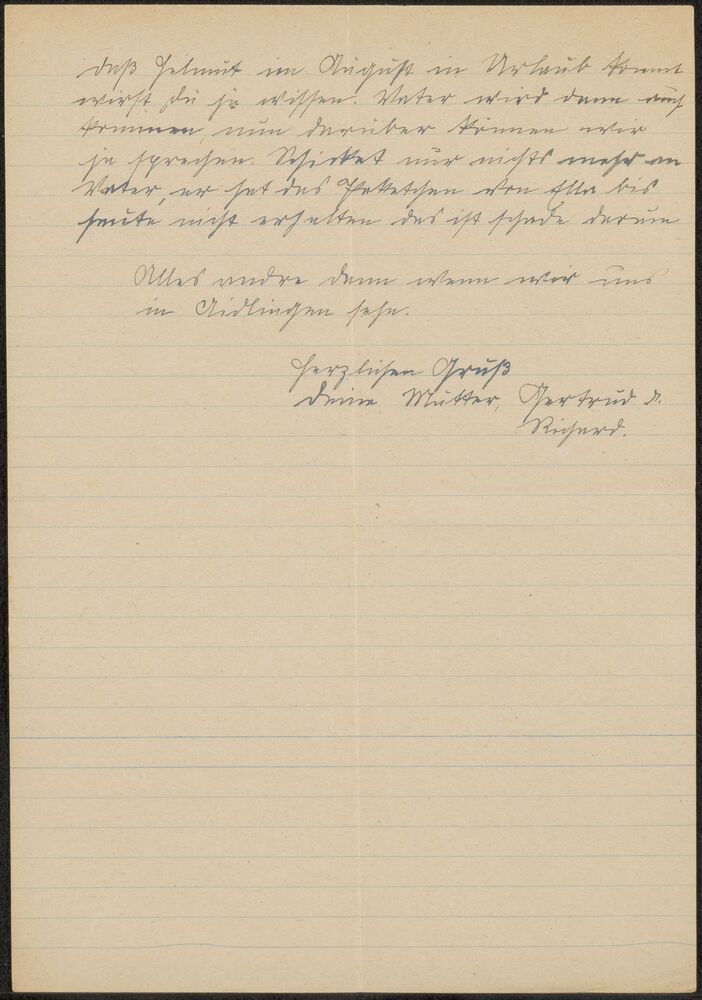 daß Helmut im August in Urlaub kommt
wirst Du ja wissen. Vater wird dann auch
kommen, nun darüber können wir
ja sprechen. Schicket nur nichts mehr an
Vater, er hat das Paketchen von Ella bis
heute nicht erhalten das ist schade darum
Alles andre dann wenn wir uns
in Aidlingen sehn.
Herzlichen Gruß
Deine Mutter, Gertrud u.
Richard.